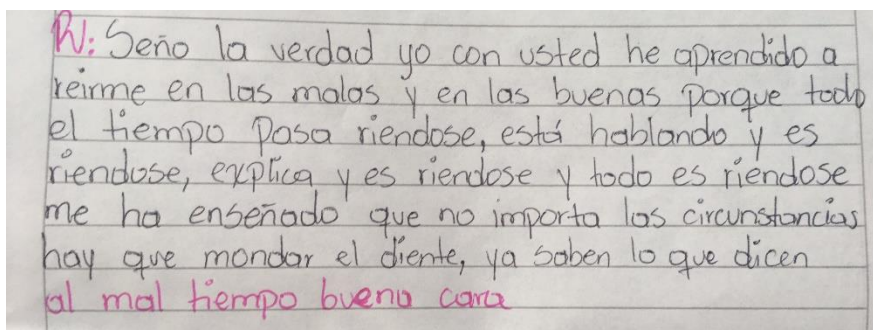 R/: Seño la verdad yo con usted he aprendido a
reirme en las malas y en las buenas porque todo
el tiempo pasa riendose, está hablando y es
riendose, explica y es riendose y todo es riendose
me ha enseñado que no importa las circunstancias
hay que mondar el diente, ya saben lo que dicen
al mal tiempo buena cara